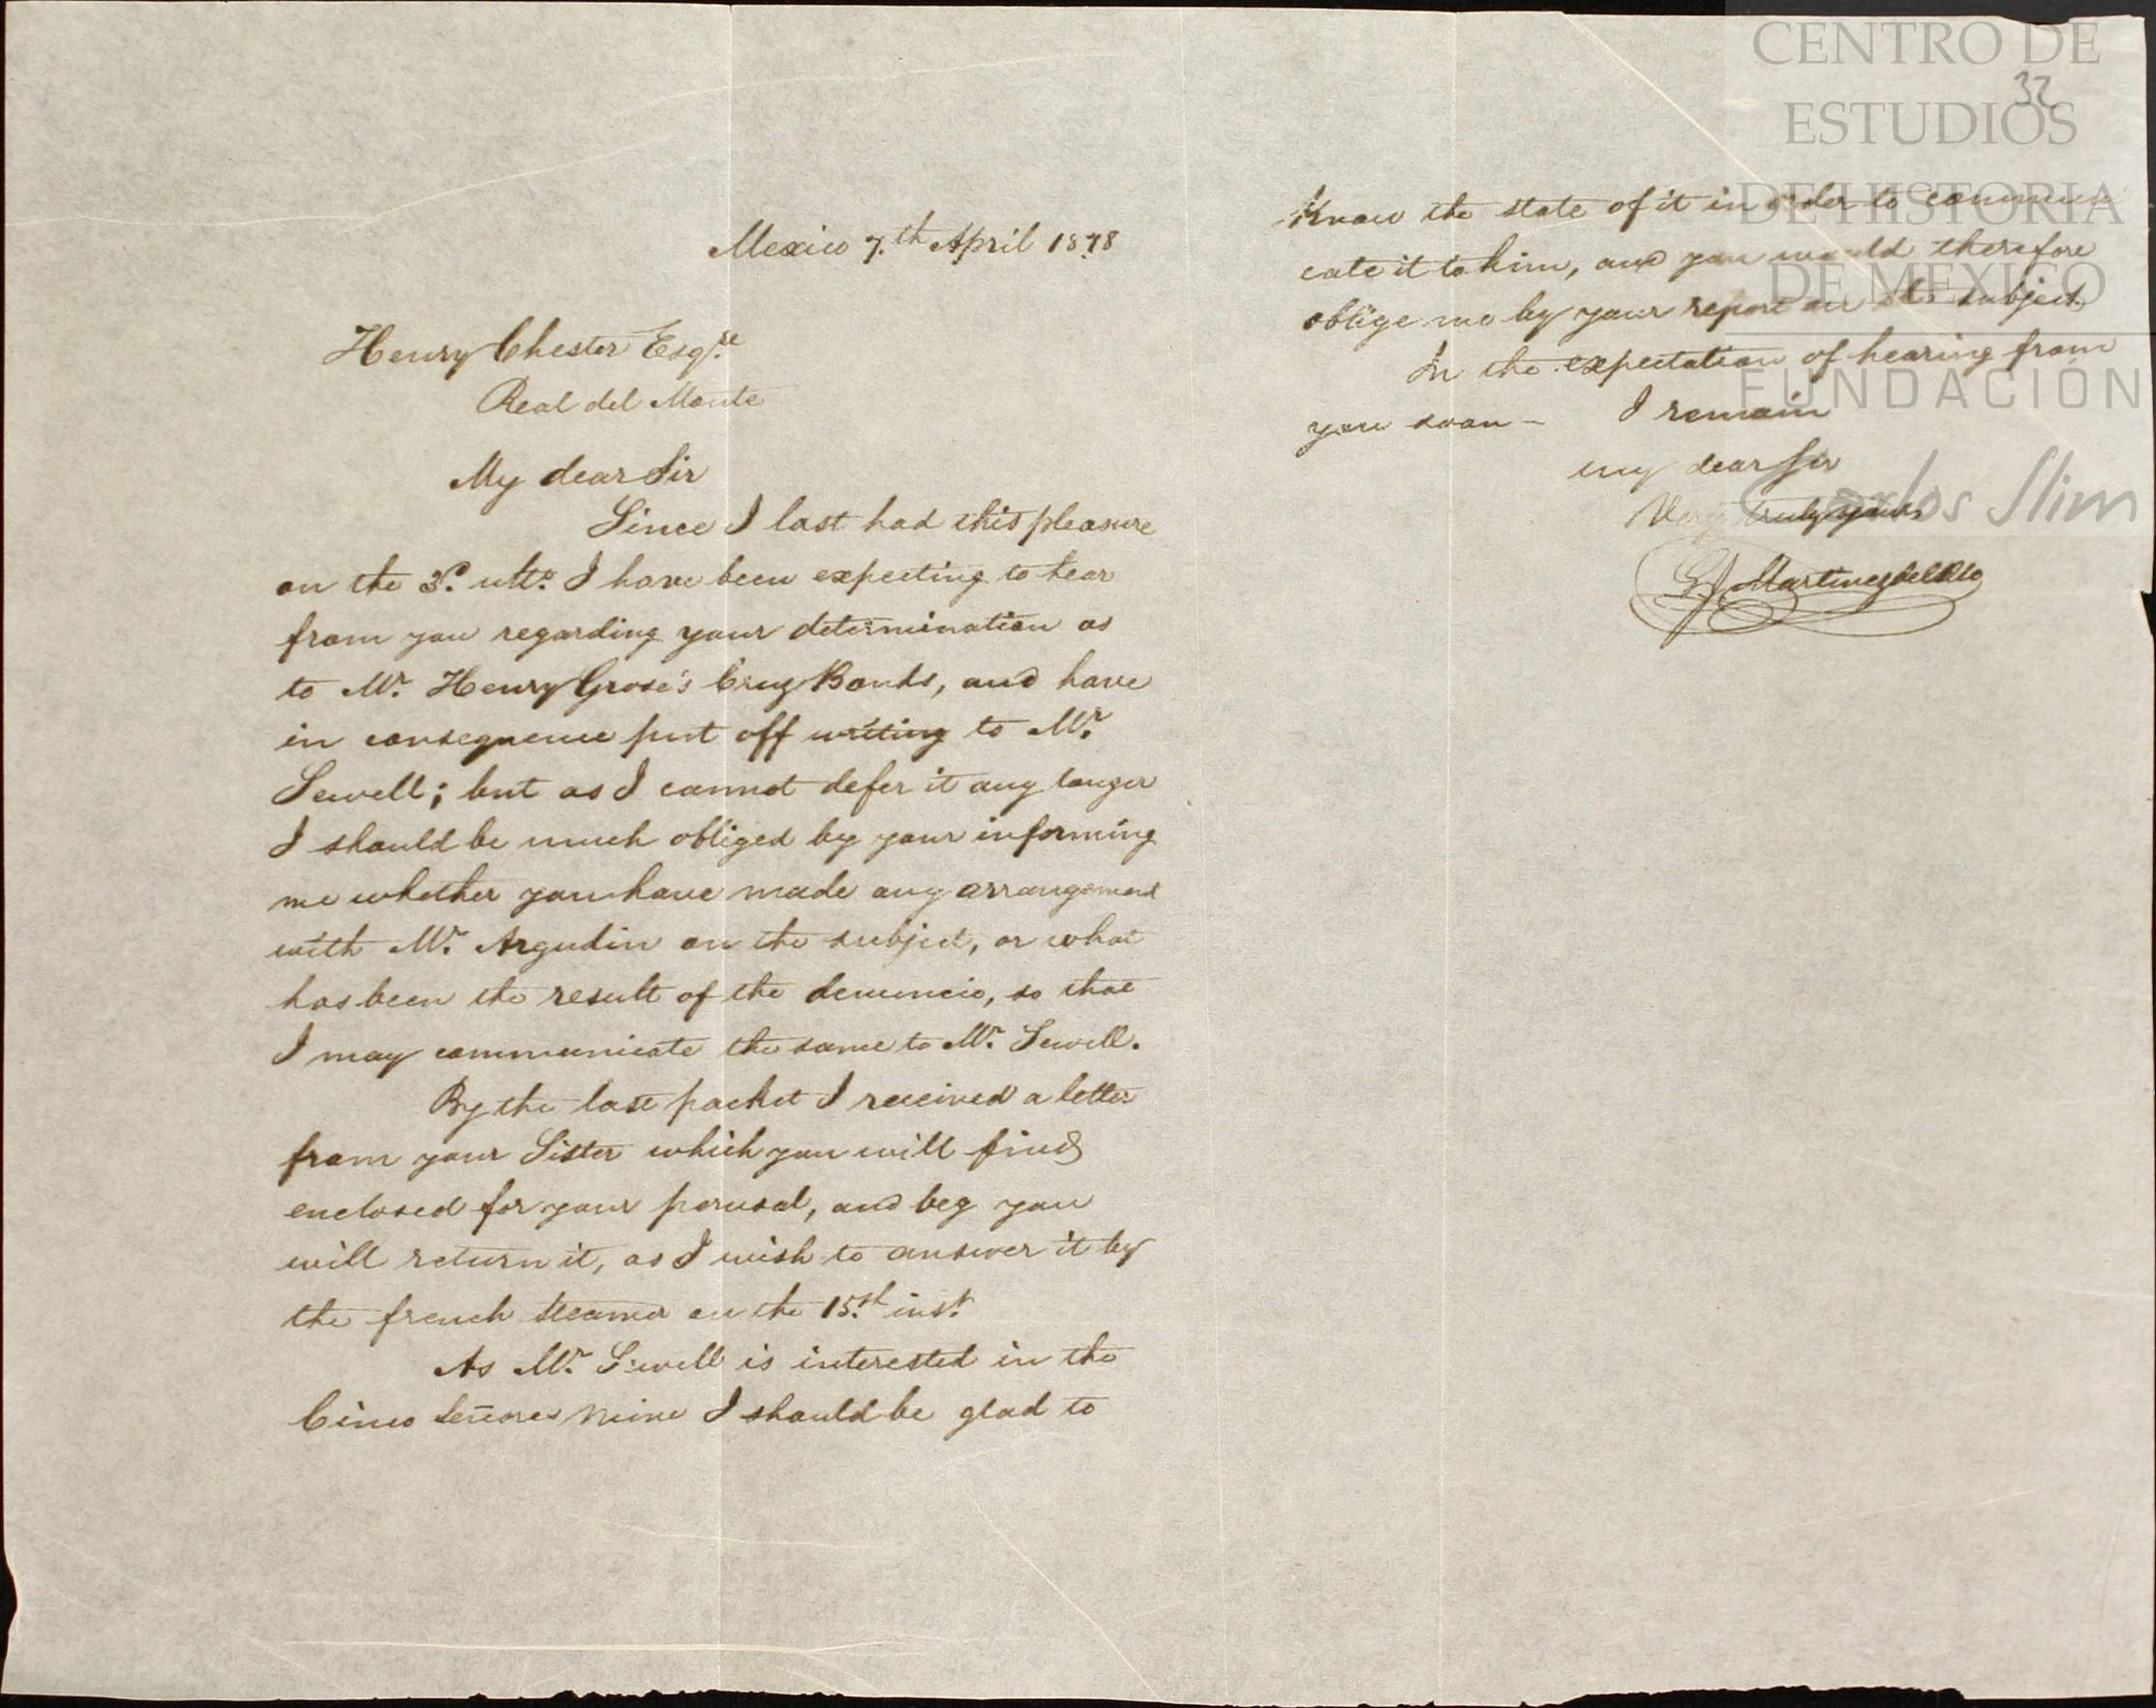 Mexico 7.th April 1878
Henry Chester Esq.re
Real del Monte
My dear Sir
Since I last had this pleasure
on the 3.d ult.o I have been expecting to hear
from you regarding your determination as
to Mr. Henry Grose's Cruz Bonds, and have
in consequence put off writing to Mr.
Sewell; but as I cannot defer it any longer
I should be much obliged by your informing
me whether you have made any arrangement
with Mr. Argudin on the subject, or what
has been the result of the denuncio, so that
I may communicate the same to Mr. Sewell.
By the last packet I received a letter
from your Sister which you will find
enclosed for your perusal, and beg you
will return it, as I wish to answer it by
the french steamer on the 15.th inst.
As Mr. Sewell is interested in the
Cinco Señores Mine I should be glad to
32
Know the state of it in order to communi
cate it to him, and you would therefore
oblige me by your report on the subject
In the expectation of hearing from
you soon – I remain
my dear Sir
Very truly yours
G. J. Martinez del Rio
CENTRO DE
ESTUDIOS
DE HISTORIA
DE MEXICO
FUNDACIÓN
Carlos Slim